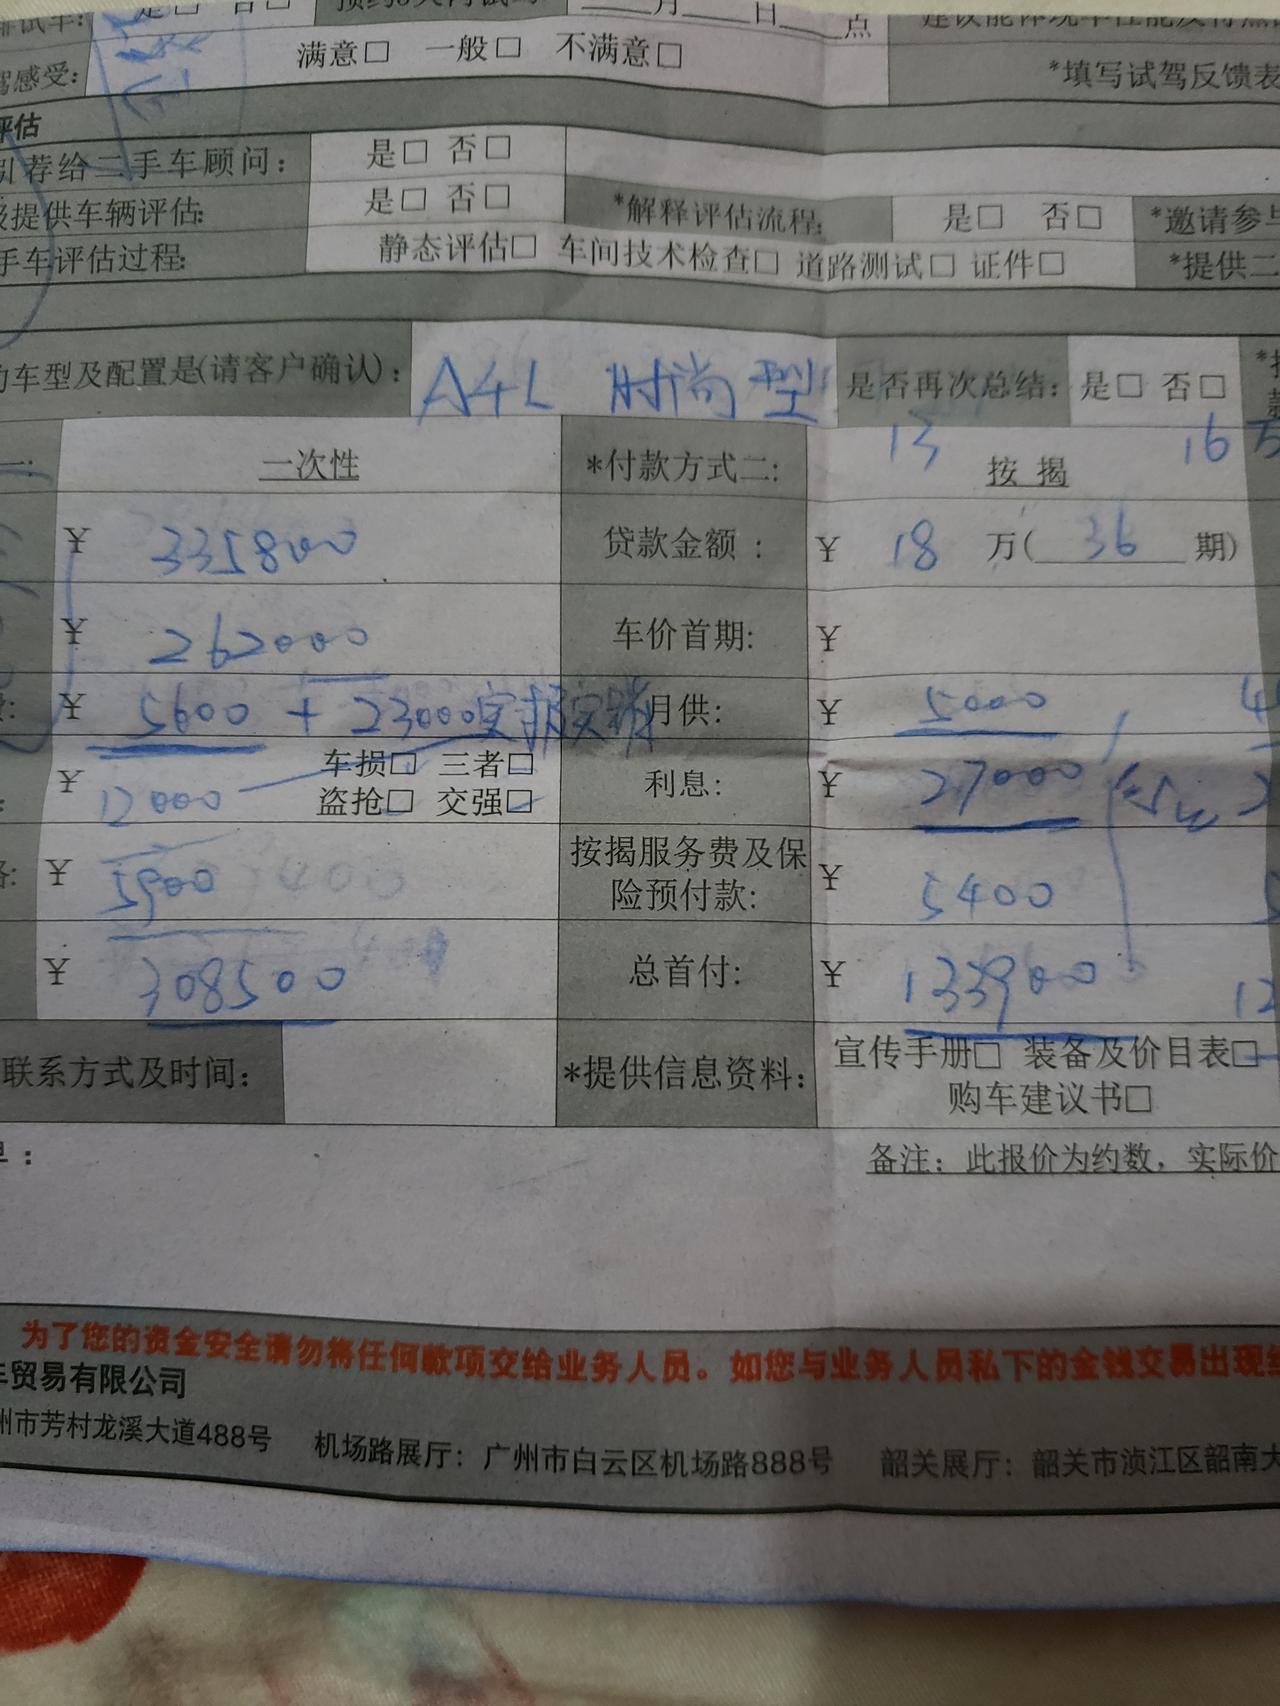 是□ 否□
月 日 点
满意□ 一般□ 不满意□
驾感受:
*填写试驾反馈表
评估
引荐给二手车顾问: 是□ 否□
提供车辆评估: 是□ 否□ *解释评估流程: 是□ 否□ *邀请参与
手车评估过程: 静态评估□ 车间技术检查□ 道路测试□ 证件□ *提供二
车型及配置是(请客户确认): A4L 时尚型 是否再次总结: 是□ 否□
一次性 *付款方式二: 13 按 揭 16万
¥ 335800 贷款金额 : ¥ 18 万( 36 期)
¥ 262000 车价首期: ¥
¥ 5600 + 23000实报实销 月供: ¥ 5000
¥ 12000 车损□ 三者□ 盗抢□ 交强□ 利息: ¥ 27000
¥ 5900 按揭服务费及保险预付款: ¥ 5400
¥ 308500 总首付: ¥ 133900
联系方式及时间: *提供信息资料: 宣传手册□ 装备及价目表□
购车建议书□
备注: 此报价为约数, 实际价
为了您的资金安全请勿将任何款项交给业务人员。如您与业务人员私下的金钱交易出现
贸易有限公司
州市芳村龙溪大道488号 机场路展厅: 广州市白云区机场路888号 韶关展厅: 韶关市浈江区韶南大